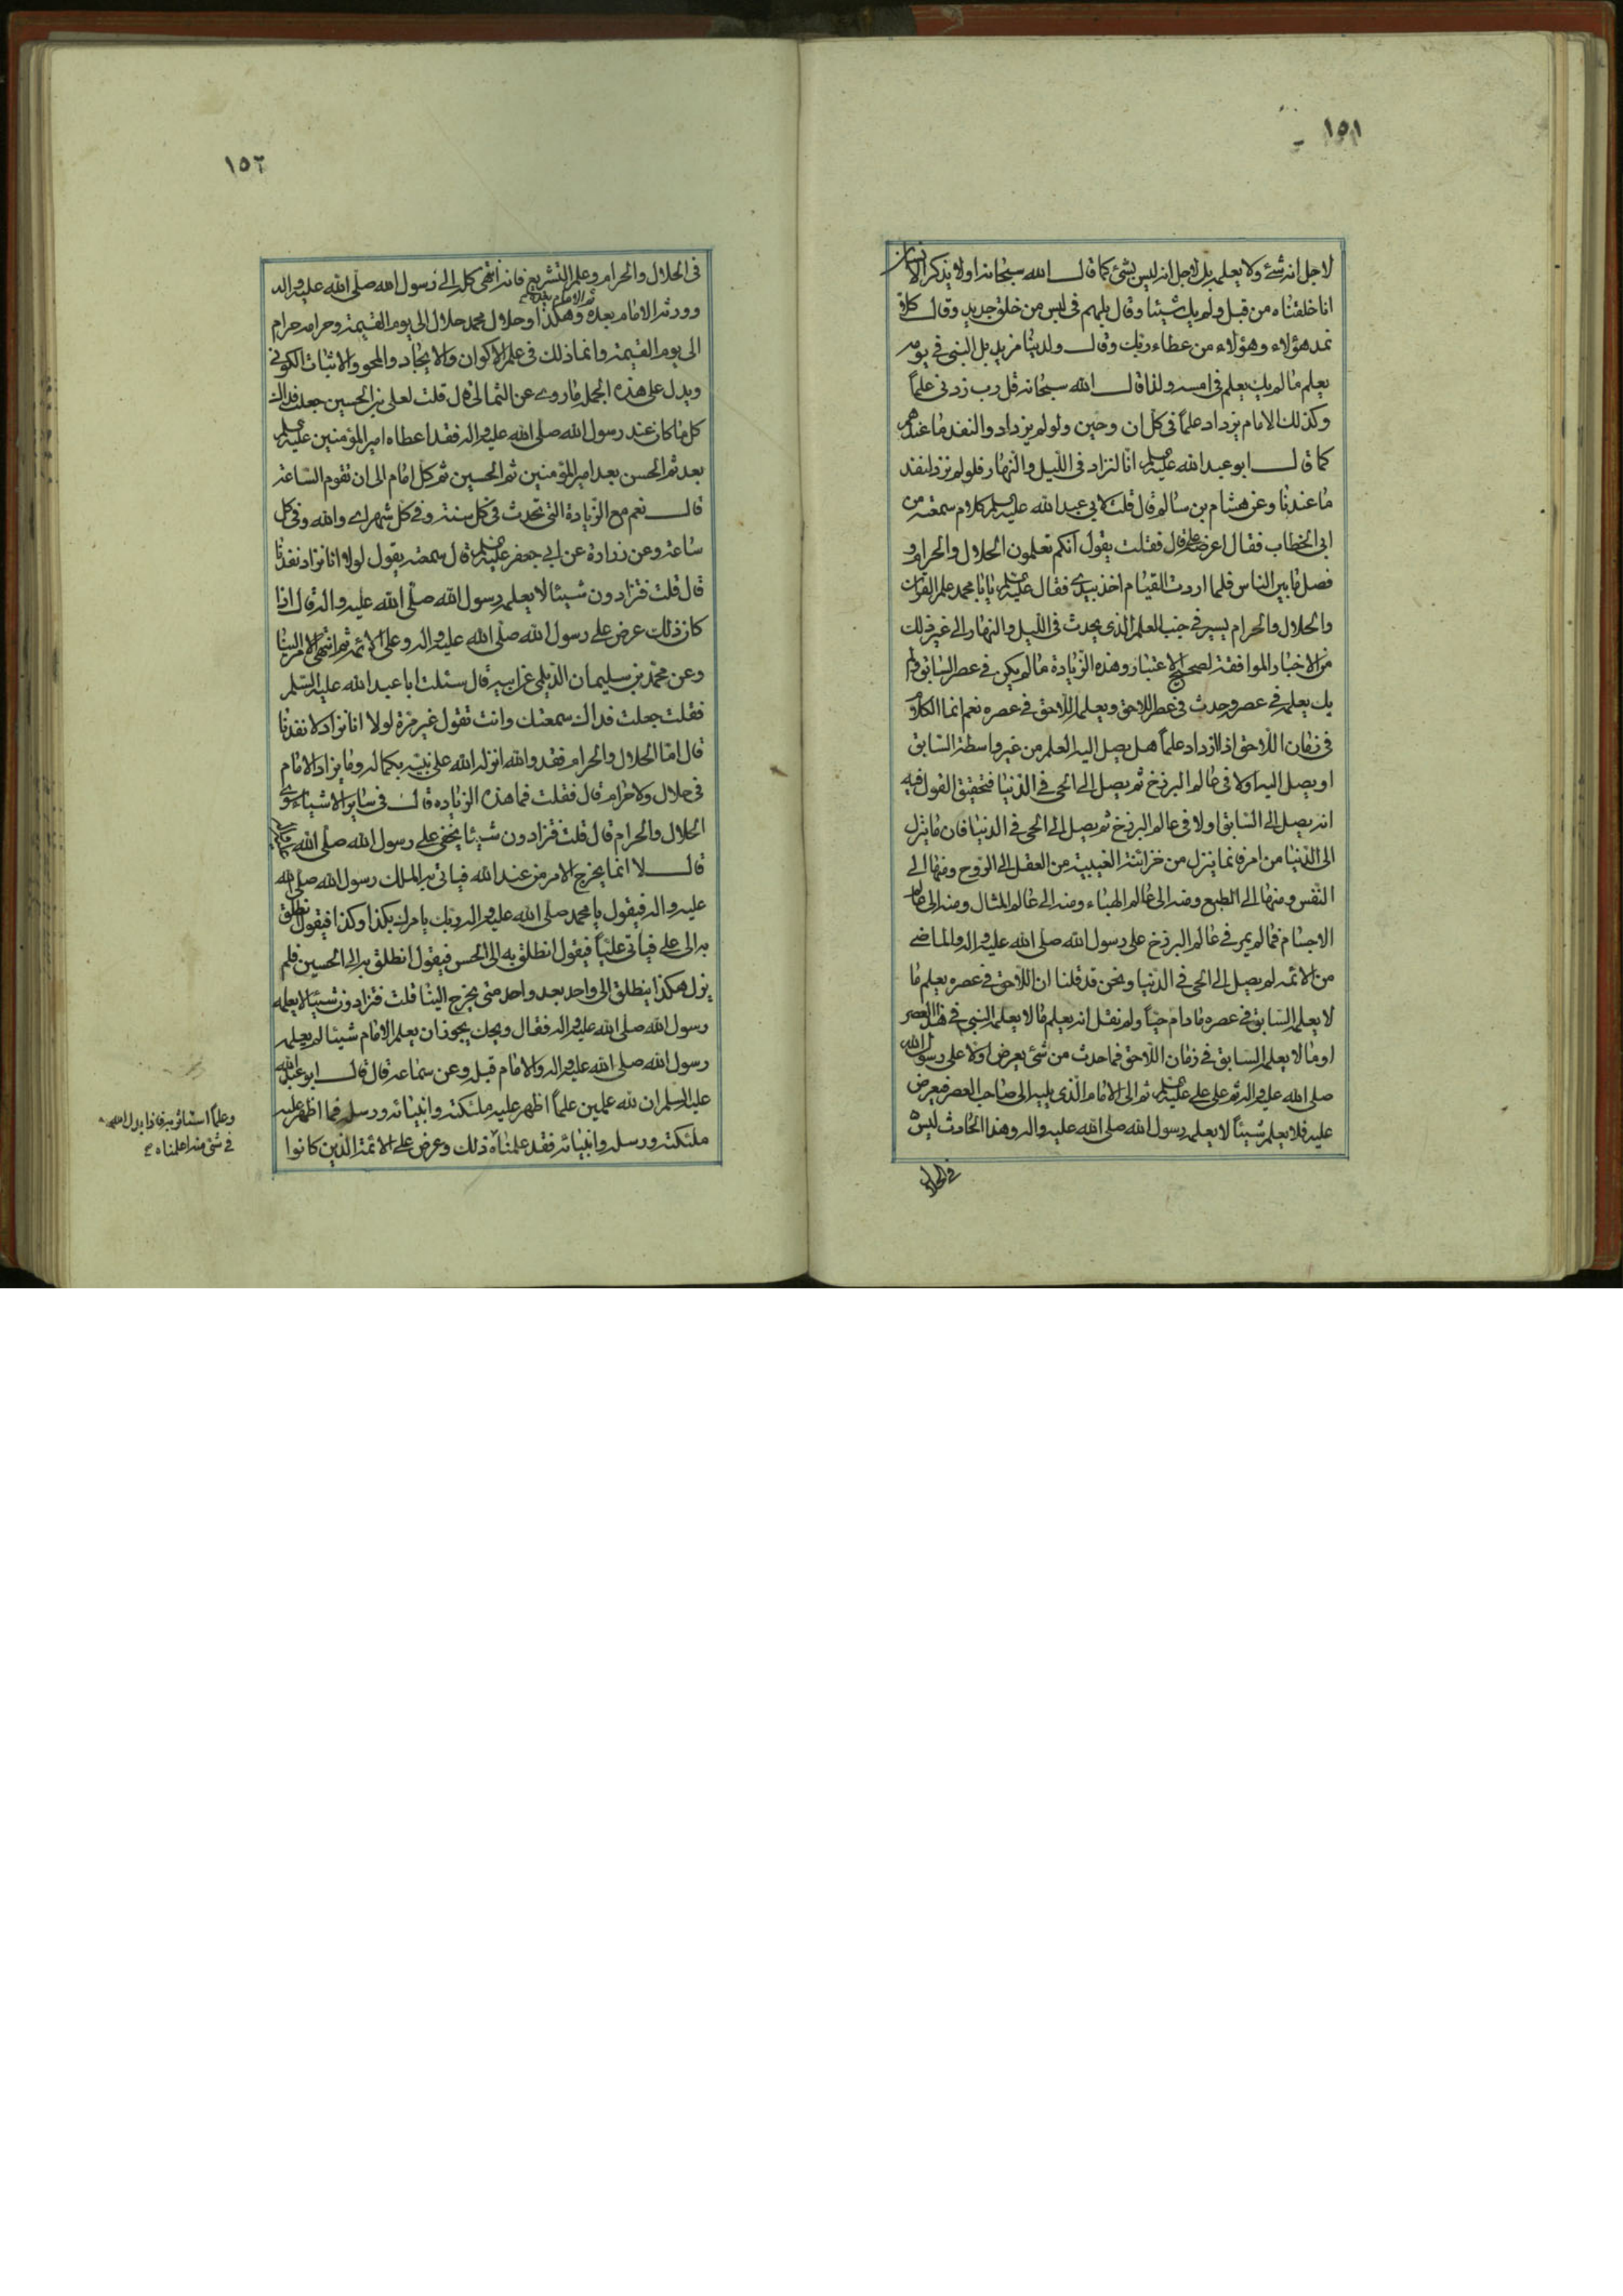 ١٥١
لاجل انه شئ ولا يعلم بل لاجل انه ليس بشئ كما قال الله سبحانه اولا يذكر الانسان
انا خلقناه من قبل ولم يك شيئا وقال بل هم فى لبس من خلق جديد وقال كلا
نمد هؤلاء وهؤلاء من عطاء ربك وقال ولدينا مزيد بل النبى فى يومه
يعلم ما لم يك يعلم فى امسه ولذا قال الله سبحانه قل رب زدنى علماً
وكذلك الامام يزداد علماً فى كل ان وحين ولو لم يزداد والنفد ما عندهم
كما قال ابو عبد الله عليه السلم انا لنزاد فى الليل والنهار فلو لم نزد لنفد
ما عندنا وعن هشام بن سالم قال قلت لابى عبد الله عليه السلم كلام سمعته من
ابى الخطاب فقال اعرضه على قال فقلت يقول انكم تعلمون الحلال والحرام و
فصل ما بين الناس فلما اردت القيام اخذ بيدى فقال عليه السلم يا با محمد علم القران
والحلال والحرام يسير فى جنب العلم الذى يحدث فى الليل والنهار الى غير ذلك
من الاخبار الموافقة لصحيح الاعتبار وهذه الزيادة ما لم يكن فى عصر السابق ولم
يك يعلمه فى عصره وحدث فى عصر اللاحق ويعلمه اللاحق فى عصره نعم انما الكلام
فى زمان اللاحق اذا ازداد علماً هل يصل اليه العلم من غير واسطة السابق
او يصل اليه اولا فى عالم البرزخ ثم يصل الى الحى فى الدنيا فتحقيق القول فيه
انه يصل الى السابق اولا فى عالم البرزخ ثم يصل الى الحى فى الدنيا فان ما ينزل
الى الدنيا من امر فانما ينزل من خزائنه الغيبية من العقل الى الروح ومنها الى
النفس ومنها الى الطبع ومنه الى عالم الهباء ومنه الى عالم المثال ومنه الى عالم
الاجسام فما لم يمر فى عالم البرزخ على رسول الله صلى الله عليه واله والماضى
من الائمه لم يصل الى الحى فى الدنيا ونحن قد قلنا ان اللاحق فى عصره يعلم ما
لا يعلم السابق فى عصره ما دام حياً ولم نقل انه يعلم ما لا يعلم النبى فى هذا العصر
او ما لا يعلم السابق فى زمان اللاحق فما حدث من شئ يعرض اولا على رسول الله
صلى الله عليه واله ثم على على عليه السلم ثم الى الامام الذى يليه الى صاحب العصر فيعرض
عليه فلا يعلم شيئاً لا يعلمه رسول الله صلى الله عليه واله وهذا الحادث ليس
فى الحلال
١٥٢
فى الحلال والحرام وعلم التشريع فانه انتهى كله الى رسول الله صلى الله عليه واله
وورثه الامام بعده ثم الامام بعده وهكذا وحلال محمد حلال الى يوم القيمة وحرامه حرام
الى يوم القيمة وانما ذلك فى علم الاكوان والايجاد والمحو والاثبات الكونى
ويدل على هذه الجمل ما روى عن الثمالى قال قلت لعلى بن الحسين جعلت فداك
كل ما كان عند رسول الله صلى الله عليه واله فقد اعطاه امير المؤمنين عليه السلم
بعده ثم الحسن بعد امير المؤمنين ثم الحسين ثم كل امام الى ان تقوم الساعة
قال نعم مع الزيادة التى تحدث فى كل سنة وفى كل شهر اى والله وفى كل
ساعة وعن زرارة عن ابى جعفر عليه السلم قال سمعته يقول لولا انا نزاد نفدنا
قال قلت فتزادون شيئا لا يعلمه رسول الله صلى الله عليه واله قال اذا
كان ذلك عرض على رسول الله صلى الله عليه واله وعلى الائمه ثم انتهى الامر الينا
وعن محمد بن سليمان الديلمى عن ابيه قال سئلت ابا عبد الله عليه السلم
فقلت جعلت فداك سمعتك وانت تقول غير مرة لولا انا نزاد لا نفدنا
قال اما الحلال والحرام فقد والله انزله الله على نبيه بكماله وما يزاد الامام
فى حلال ولا حرام قال فقلت فما هذه الزياده قال فى ساير الاشياء سوى
الحلال والحرام قال قلت فتزادون شيئا يخفى على رسول الله صلى الله
قال لا انما يخرج الامر من عند الله فياتى به الملك رسول الله صلى الله
عليه واله فيقول يا محمد صلى الله عليه واله ربك يامرك بكذا وكذا فيقول انطلق
به الى على فياتى علياً فيقول انطلق به الى الحسن فيقول انطلق به الى الحسين فلم
يزل هكذا ينطلق الى واحد بعد واحد حتى يخرج الينا قلت فتزادون شيئا لا يعلمه
رسول الله صلى الله عليه واله فقال ويحك يجوز ان يعلم الامام شيئا لم يعلمه
رسول الله صلى الله عليه واله والامام قبله وعن سماعة قال قال ابو عبد الله
عليه السلم ان لله علمين علماً اظهر عليه ملئكته وانبيائه ورسله فما اظهر عليه
ملئكته ورسله وانبيائه فقد علمناه ذلك وعرض على الائمة الذين كانوا
وعلماً استاثر به فاذا بدا لله
فى شئ منه اعلمناه